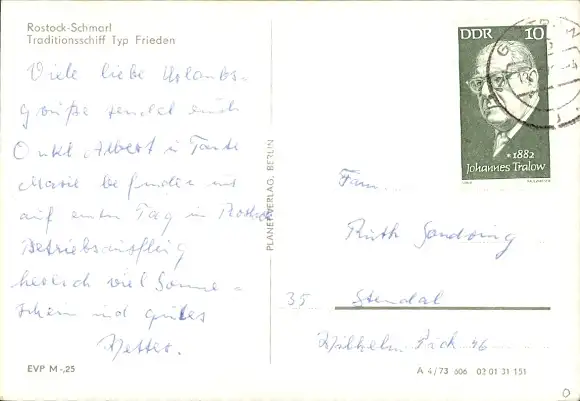 Rostock-Schmarl
Traditionsschiff Typ Frieden
Viele liebe Urlaubs-
grüße sendet euch
Onkel Albert u Tante
Marie befinden uns
auf einen Tag in Rostock
Betriebsausflug
herrlich viel Sonne-
schein und gutes
Wetter.
EVP M -,25
PLANET-VERLAG, BERLIN
DDR 10
*1882
Johannes Tralow
Fam.
Ruth
35 Stendal
Wilhelm Pick 46
A 4/73 606 02 01 31 151